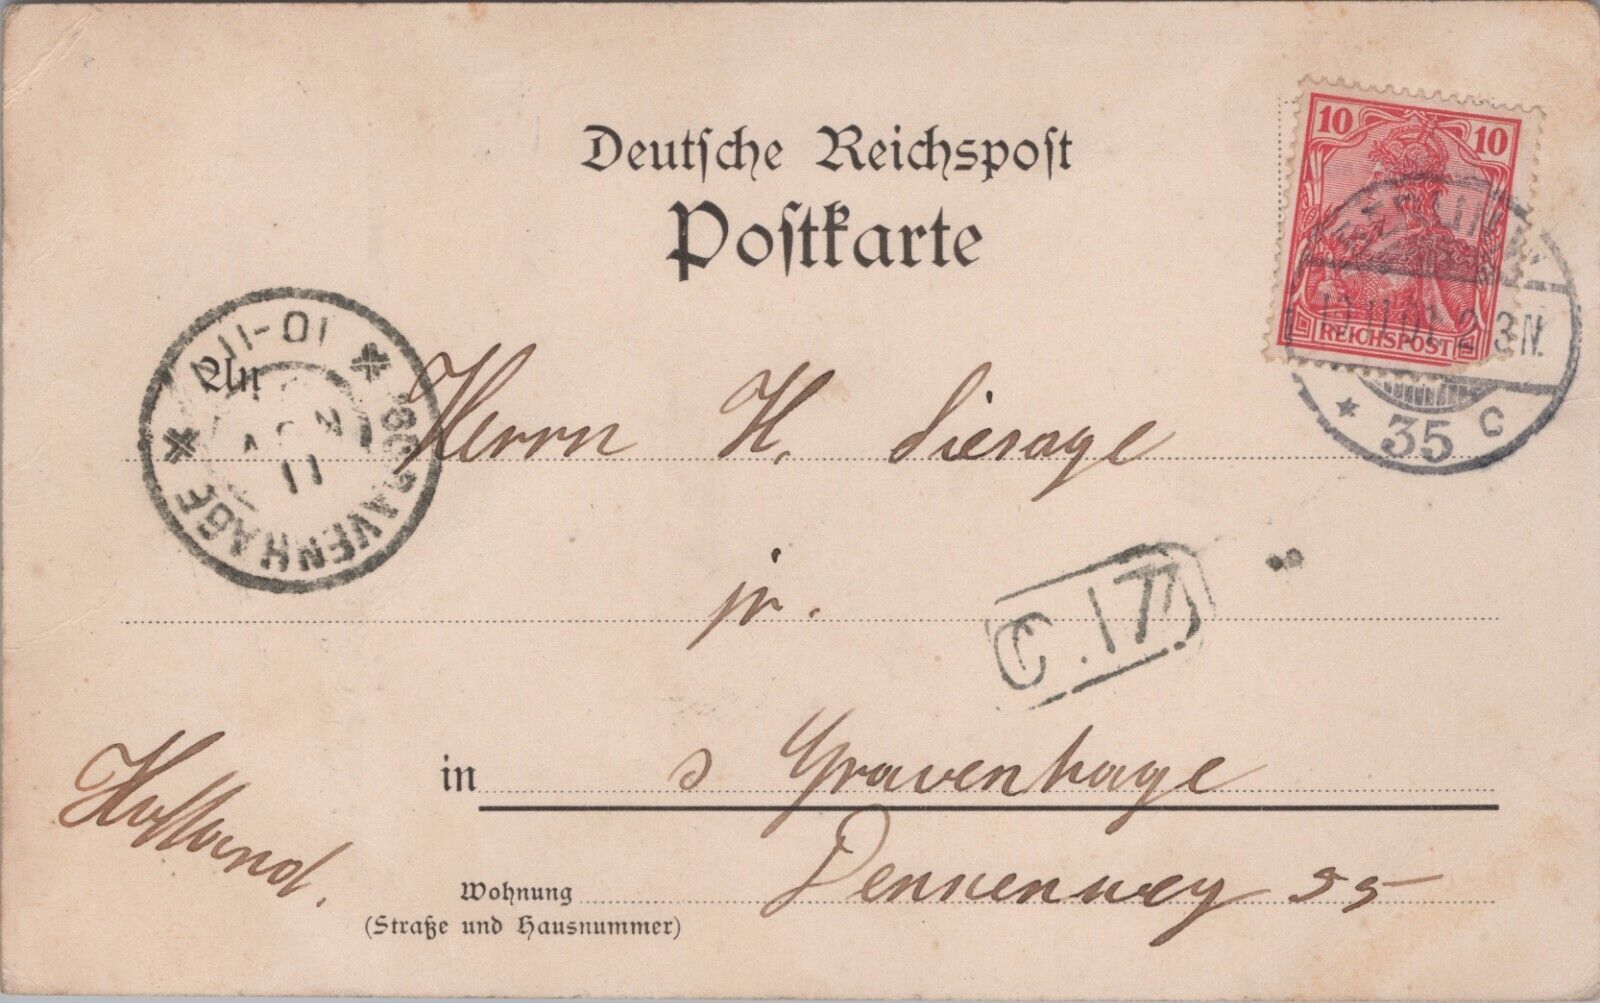 Deutsche Reichspost
Postkarte
10 10
REICHSPOST
BERLIN W
11.01 2-3N.
* 35 c
'SGRAVENHAGE
11
An
Herrn H. Lierage
jr.
C.17
in s Gravenhage
Holland.
Wohnung Dennenweg 55
(Straße und Hausnummer)